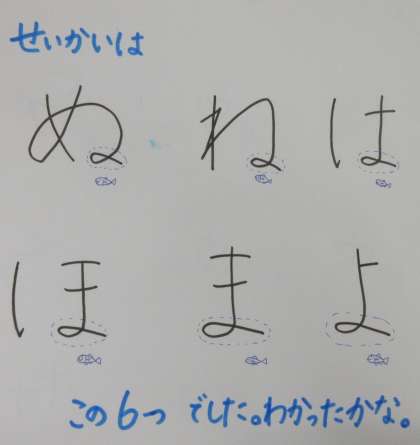 せいかいは
ぬ ね は
ほ ま よ
この6つ でした。わかったかな。